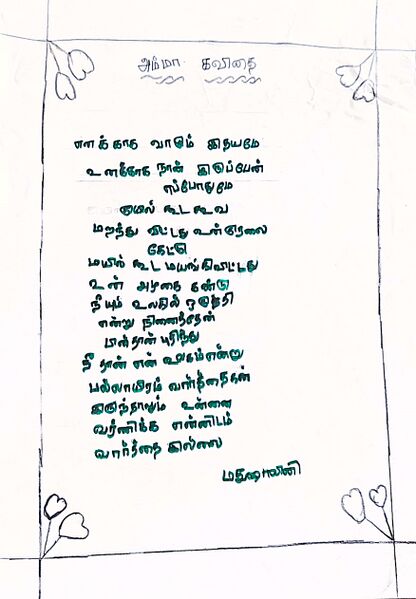 அம்மா கவிதை
எனக்காக வாழும் இதயமே
உனக்காக நான் இருப்பேன்
எப்போதுமே
குயில் கூட கூவ
மறந்து விட்டது உன் குரலை
கேட்டு
மயில் கூட மயங்கிவிட்டது
உன் அழகை கண்டு
நீயும் உலகில் ஒருத்தி
என்று நினைத்தேன்
பின்தான் புரிந்து
நீ தான் என் உலகம்என்று
பல்லாயிரம் வார்த்தைகள்
இருந்தாலும் உன்னை
வர்ணிக்க என்னிடம்
வார்த்தை இல்லை
மதுஷாலினி